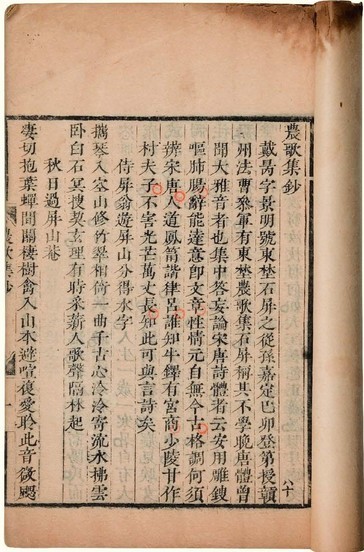 農歌集鈔
八十
戴昺字景明號東埜石屏之從孫嘉定己卯登第授贛
州法曹叅軍有東埜農歌集石屏稱其不學晚唐體曾
聞大雅音者也集中答妄論宋唐詩體者云安用雕鎪
嘔肺腸辭能達意卽文章性情元自無今古格調何須
辨宋唐人道鳳筩諧律呂誰知牛鐸有宮商少陵甘作
村夫子不害光芒萬丈長知此可與言詩矣
侍屏翁遊屏山分得水字
攜琴入空山修竹翠相倚一曲千古心泠泠寄流水拂雲
臥白石冥搜契玄理有時采薪人歌聲隔林起
秋日過屏山菴
凄切抱葉蟬間關棲樹禽入山本避喧復愛聆此音微颸
農歌集鈔